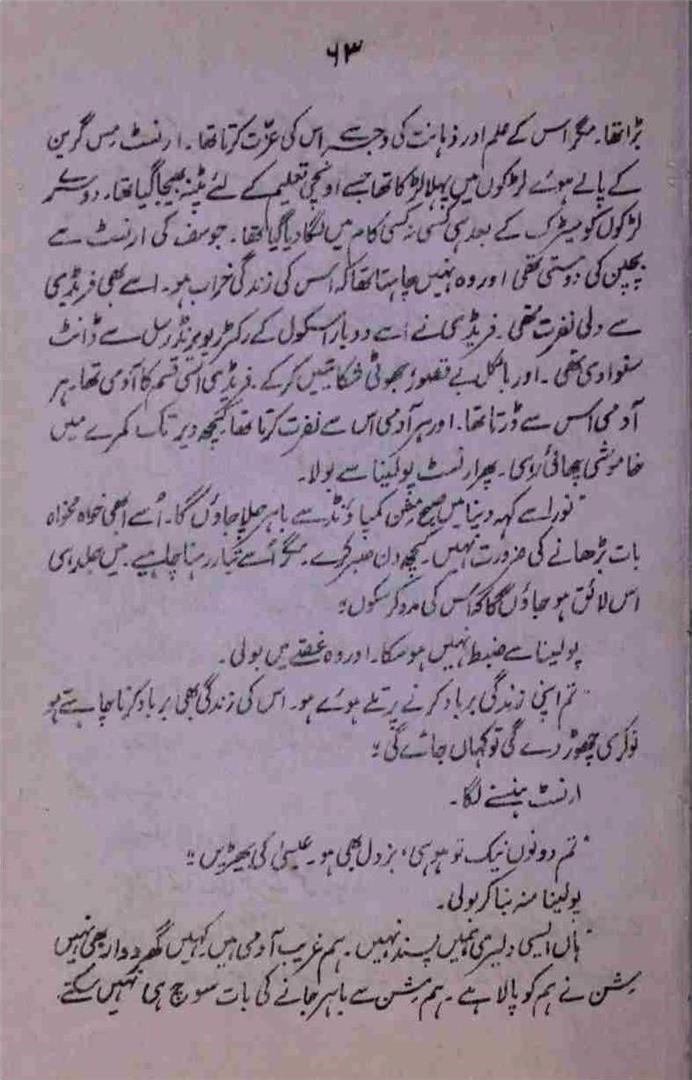 ۶۳
بڑا تھا۔ مگر اس کے علم اور ذہانت کی وجہ سے اس کی عزّت کرتا تھا۔ ارنسٹ مِس گرین
کے پالے ہوئے لڑکوں میں پہلا لڑکا تھا جسے اونچی تعلیم کے لئے پٹنہ بھیجا گیا تھا۔ دوسرے
لڑکوں کو میٹرک کے بعد ہی کسی نہ کسی کام میں لگا دیا گیا تھا۔ جوسف کی ارنسٹ سے
بچپن کی دوستی تھی اور وہ نہیں چاہتا تھا کہ اس کی زندگی خراب ہو۔ اسے بھی فریڈی
سے دلی نفرت تھی۔ فریڈی نے اسے دوبار اسکول کے رکٹر ریورنڈ رسل سے ڈانٹ
سنوا دی تھی۔ اور بالکل بے قصور جھوٹی شکایتیں کرکے۔ فریڈی اسی قسم کا آدمی تھا۔ ہر
آدمی اس سے ڈرتا تھا۔ اور ہر آدمی اس سے نفرت کرتا تھا۔ کچھ دیر تک کمرے میں
خاموشی چھائی رہی۔ پھر ارنسٹ پولینا سے بولا۔
"نورا سے کہہ دینا میں صبح مشن کمپاؤنڈ سے باہر چلا جاؤں گا۔ اُسے ابھی خواہ مخواہ
بات بڑھانے کی ضرورت نہیں۔ کچھ دن صبر کرے۔ مگر اُسے تیار رہنا چاہیے۔ میں جلد ہی
اس لائق ہو جاؤں گا کہ اُس کی مدد کر سکوں"
پولینا سے ضبط نہیں ہو سکا۔ اور وہ غصّے میں بولی۔
"تم اپنی زندگی برباد کرنے پر تلے ہوئے ہو۔ اس کی زندگی بھی برباد کرنا چاہتے ہو
نوکری چھوڑ دے گی تو کہاں جائے گی"
ارنسٹ ہنسنے لگا۔
"تم دونوں نیک تو ہو ہی، بزدل بھی ہو۔ عیسیٰ کی بھیڑیں"
پولینا منہ بنا کر بولی۔
"ہاں ایسی دلیری ہمیں پسند نہیں۔ ہم غریب آدمی ہیں۔ کہیں گھر دوار بھی نہیں
مشن نے ہم کو پالا ہے۔ ہم مشن سے باہر جانے کی بات سوچ ہی نہیں سکتے۔